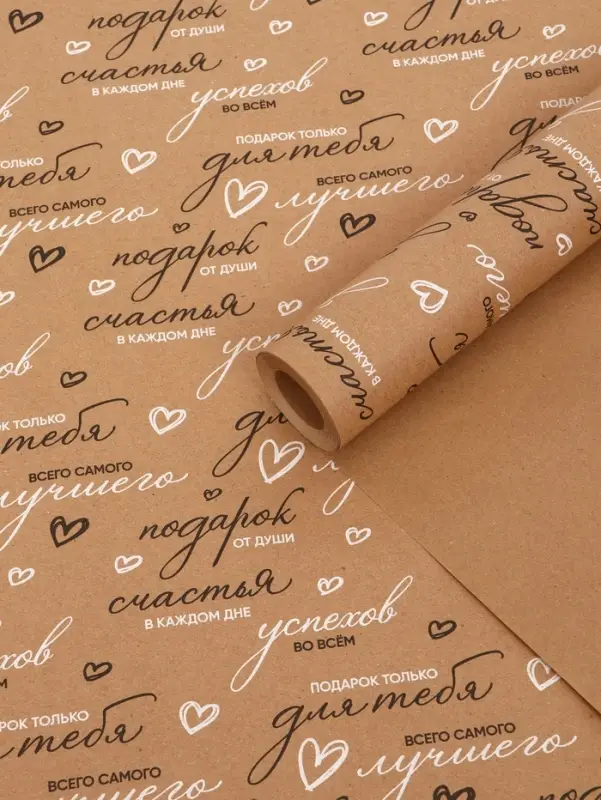 подарок
ОТ ДУШИ
счастья
В КАЖДОМ ДНЕ
успехов
ВО ВСЁМ
ПОДАРОК ТОЛЬКО
для тебя
ТОЛЬКО
тебя
ВСЕГО САМОГО
лучшего
ВСЕГО САМОГО
лучшего
подарок
ОТ ДУШИ
счастья
В КАЖДОМ ДНЕ
ПОДАРОК ТОЛЬКО
тебя
ВСЕГО САМОГО
лучшего
подарок
ОТ ДУШИ
счастья
В КАЖДОМ ДНЕ
успехов
ВО ВСЁМ
ПОДАРОК ТОЛЬКО
для тебя
ПОДАРОК ТОЛЬКО
тебя
ВСЕГО САМОГО
лучшего
ВСЕГО САМОГО
лучшего
В КАЖДОМ ДНЕ
В КАЖДОМ ДНЕ